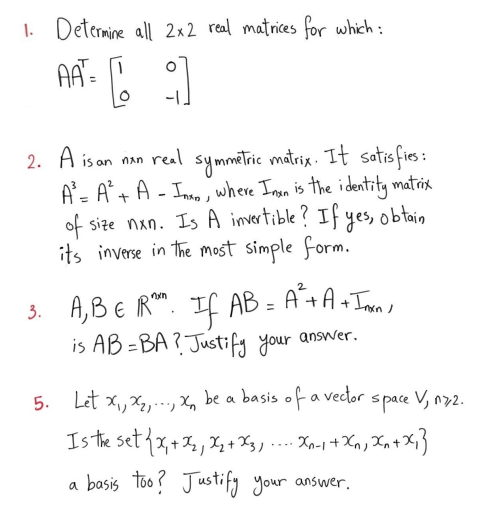 1. Determine all 2x2 real matrices for which:
AAᵀ = [1 0
0 -1]
2. A is an nxn real symmetric matrix. It satisfies:
A³ = A² + A - Iₙₓₙ, where Iₙₓₙ is the identity matrix
of size nxn. Is A invertible? If yes, obtain
its inverse in the most simple form.
3. A, B ∈ ℝⁿˣⁿ. If AB = A² + A + Iₙₓₙ,
is AB = BA? Justify your answer.
5. Let x₁, x₂, ..., xₙ be a basis of a vector space V, n≥2.
Is the set {x₁+x₂, x₂+x₃, .... xₙ₋₁+xₙ, xₙ+x₁}
a basis too? Justify your answer.